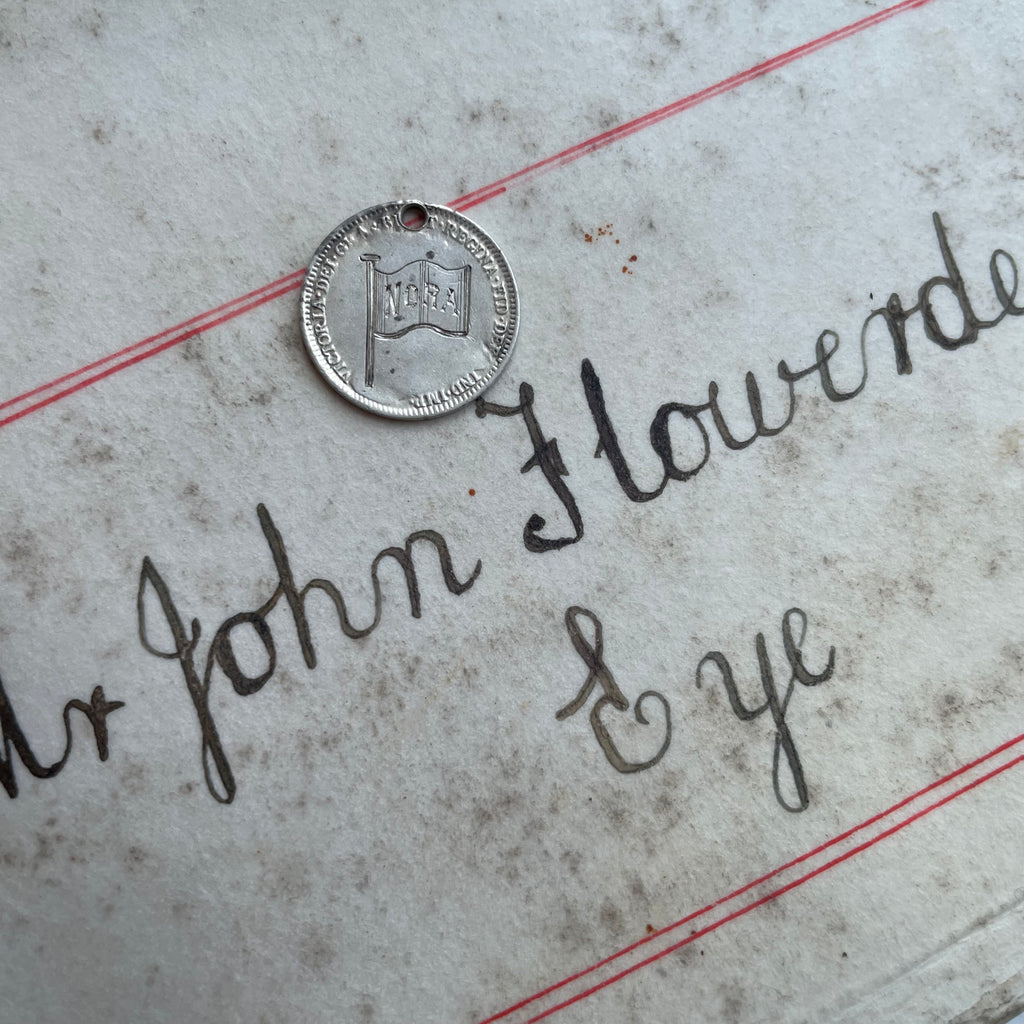 VICTORIA·DEI·GRA·BRITT·REGINA·FID·DEF·IND·IMP·
NORA
Mr John Flowerde
Eye